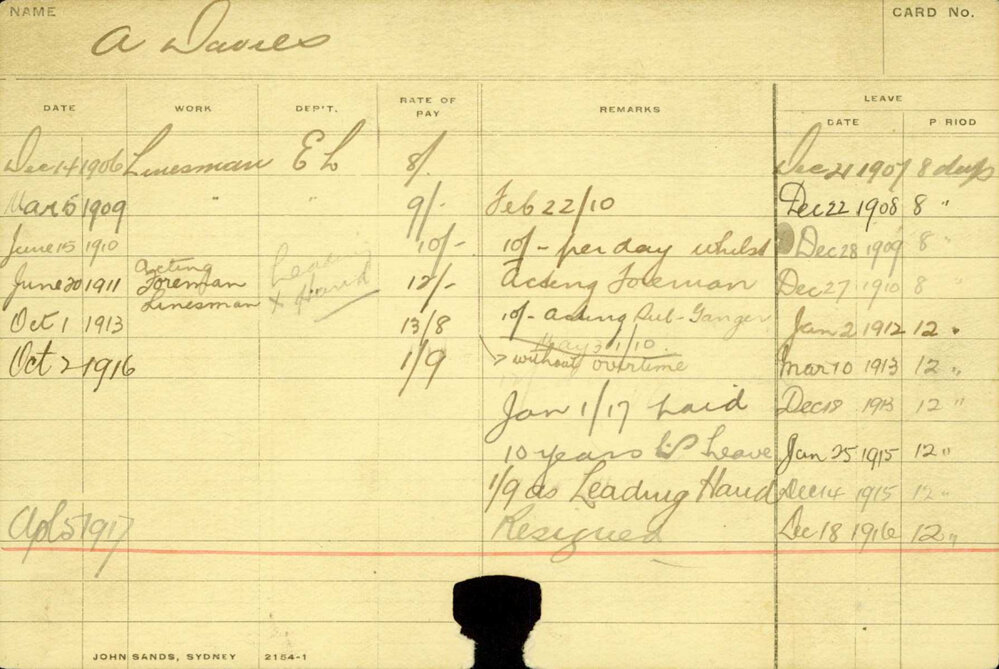 NAME
CARD No.
A Davies
DATE WORK DEP'T. RATE OF PAY REMARKS LEAVE
DATE P RIOD
Dec 14 1906 Linesman E L 8/. Dec 21 1907 8 days
Mar 5 1909 " " 9/- Feb 22/10 Dec 22 1908 8 "
June 15 1910 10/- 10/- per day whilst Dec 28 1909 8 "
June 20 1911 Acting Foreman Leading + Hand 12/- Acting Foreman Dec 27 1910 8 "
Linesman
Oct 1 1913 13/8 10/- Acting Sub-Ganger Jan 2 1912 12 "
May 31/10.
Oct 2 1916 1/9 without overtime Mar 10 1913 12 "
Jan 1/17 paid Dec 18 1913 12 "
10 years Leave Jan 25 1915 12 "
1/9 as Leading Hand Dec 14 1915 12 "
Apl 5 1917 Resigned Dec 18 1916 12 "
JOHN SANDS, SYDNEY 2154-1